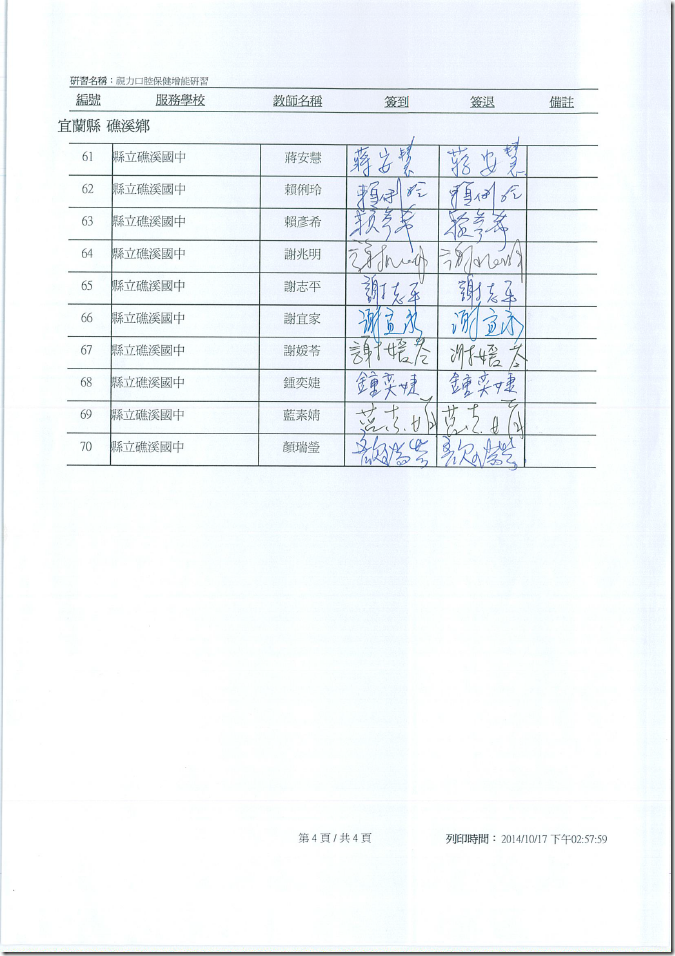 研習名稱：視力口腔保健增能研習
編號 服務學校 教師名稱 簽到 簽退 備註
宜蘭縣 礁溪鄉
61 縣立礁溪國中 蔣安慧 蔣安慧 蔣安慧
62 縣立礁溪國中 賴俐玲 賴俐玲 賴俐玲
63 縣立礁溪國中 賴彥希 賴彥希 賴彥希
64 縣立礁溪國中 謝兆明 謝兆明 謝兆明
65 縣立礁溪國中 謝志平 謝志平 謝志平
66 縣立礁溪國中 謝宜家 謝宜家 謝宜家
67 縣立礁溪國中 謝媛苓
68 縣立礁溪國中 鍾奕婕 鍾奕婕 鍾奕婕
69 縣立礁溪國中 藍素婧 藍素婧 藍素婧
70 縣立礁溪國中 顏瑞瑩 顏瑞瑩 顏瑞瑩
第 4 頁 / 共 4 頁 列印時間： 2014/10/17 下午02:57:59